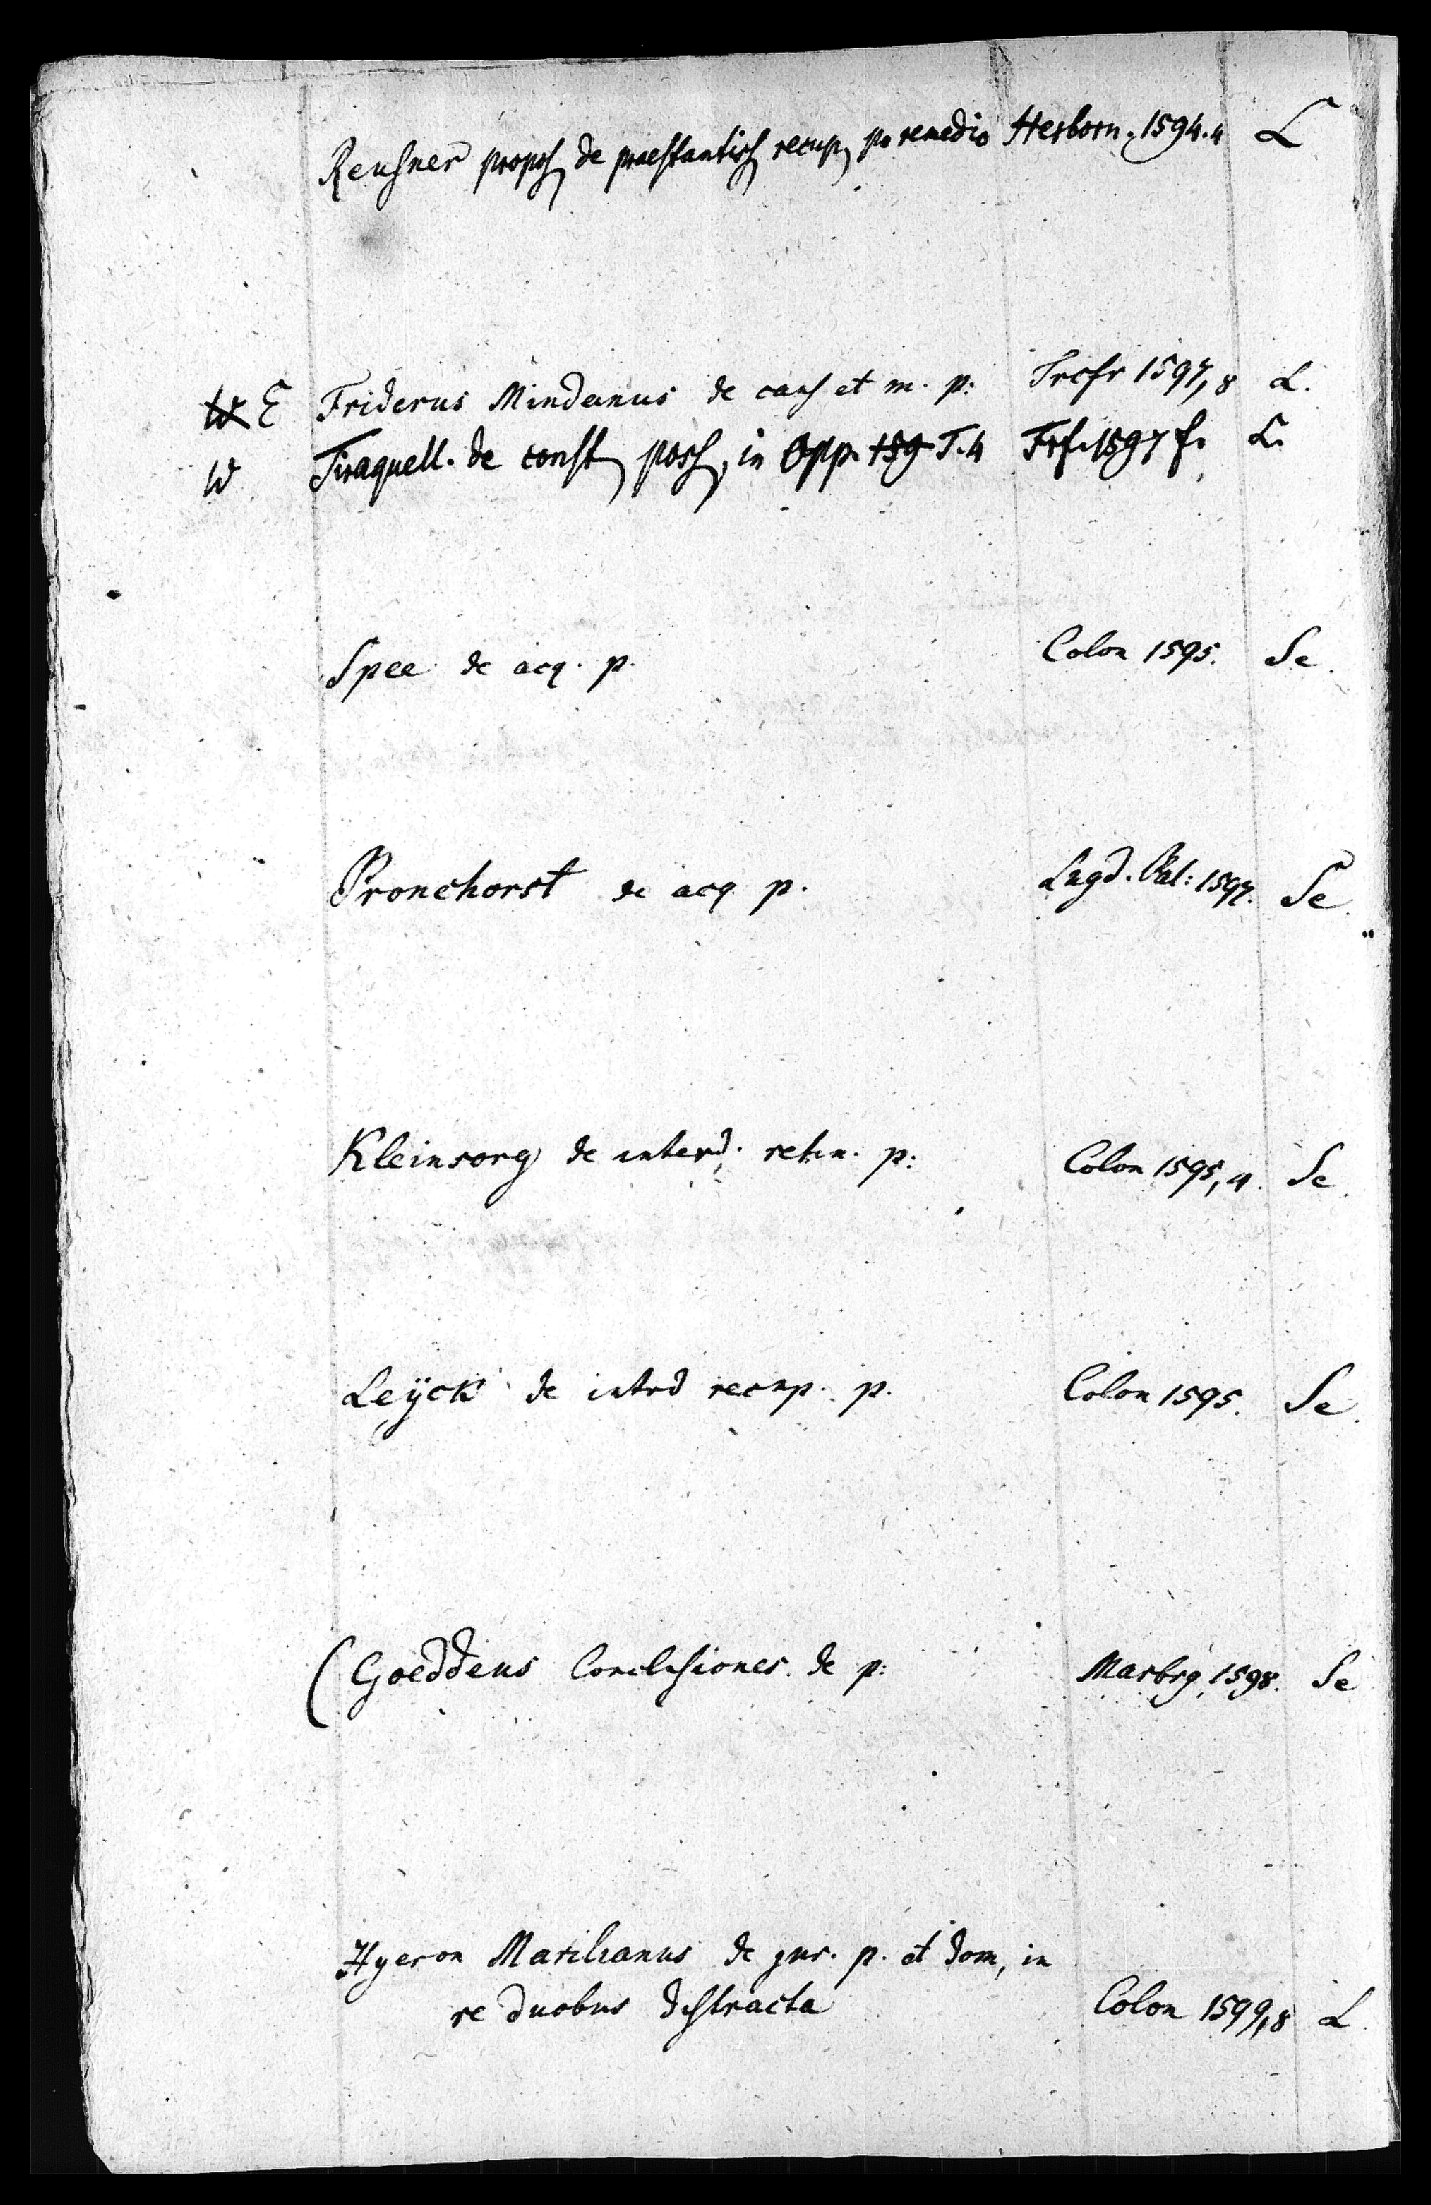 Reusner propos de praestantiss recup po remedio Herborn. 1594. 4 L
W E Friderus Mindanus de caus et m. p. Frcfr 1597, 8 L.
W Tiraquell. de const poss, in Opp. 159 T. 4 Frf. 1597 f. L.
Spee de acq. p. Colon 1595. Se.
Bronchorst de acq p. Lugd. Bat: 1597. Se.
Kleinsorg de interd. retin. p: Colon 1595, 4. Se.
Leÿck de intrd recup. p. Colon 1595. Se.
(Goeddeus Conclusiones de p: Marbrg 1598. Se
Hyeron Marilianus de jur. p. et dom, in
re duobus distracta Colon 1599, 8 L.